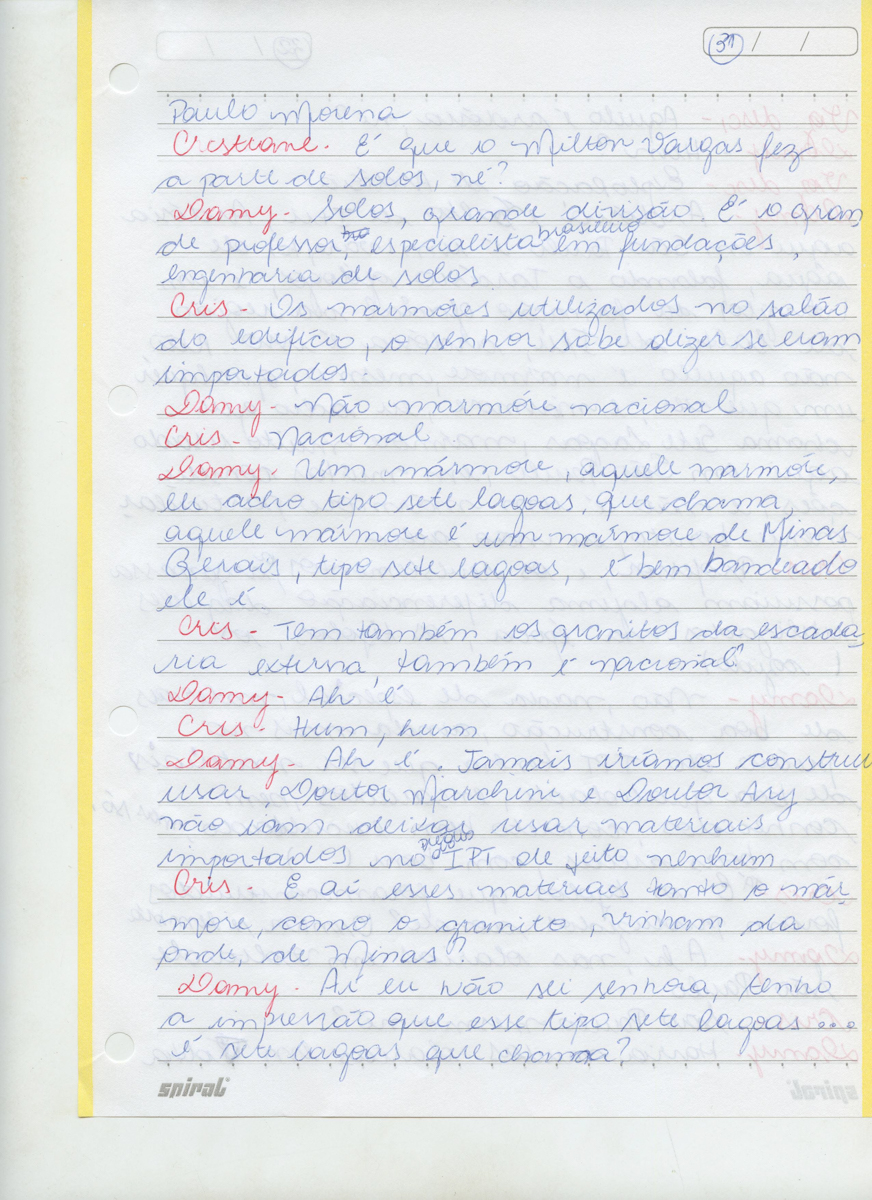 31 / /
Paulo Morena
Cristiane - É que o Milton Vargas fez
a parte de solos, né?
Damy - Solos, grande divisão. É o gran
de professor, bra especialista brasileiro em fundações,
engenharia de solos
Cris - Os marmóres utilizados no salão
do edifício, o senhor sabe dizer se eram
importados.
Damy - Não marmóre nacional
Cris - Nacional
Damy - Um mármore, aquele marmóre,
eu acho tipo sete lagoas, que chama,
aquele mármore é um marmore de Minas
Gerais, tipo sete lagoas, é bem bandeado
ele é
Cris - Tem também os granitos da escada-
ria externa, também é nacional?
Damy - Ah é
Cris - Hum, hum
Damy - Ah é. Jamais iriámos constru
usar, Doutor Marchini e Doutor Ary
não iam deixar usar materiais
importados no IPT de jeito nenhum
Cris - E aí esses materiais tanto o már-
more, como o granito, vinham da
onde, de Minas?
Damy - Aí eu não sei senhora, tenho
a impressão que esse tipo sete lagoas...
é sete lagoas que chama?
spiral